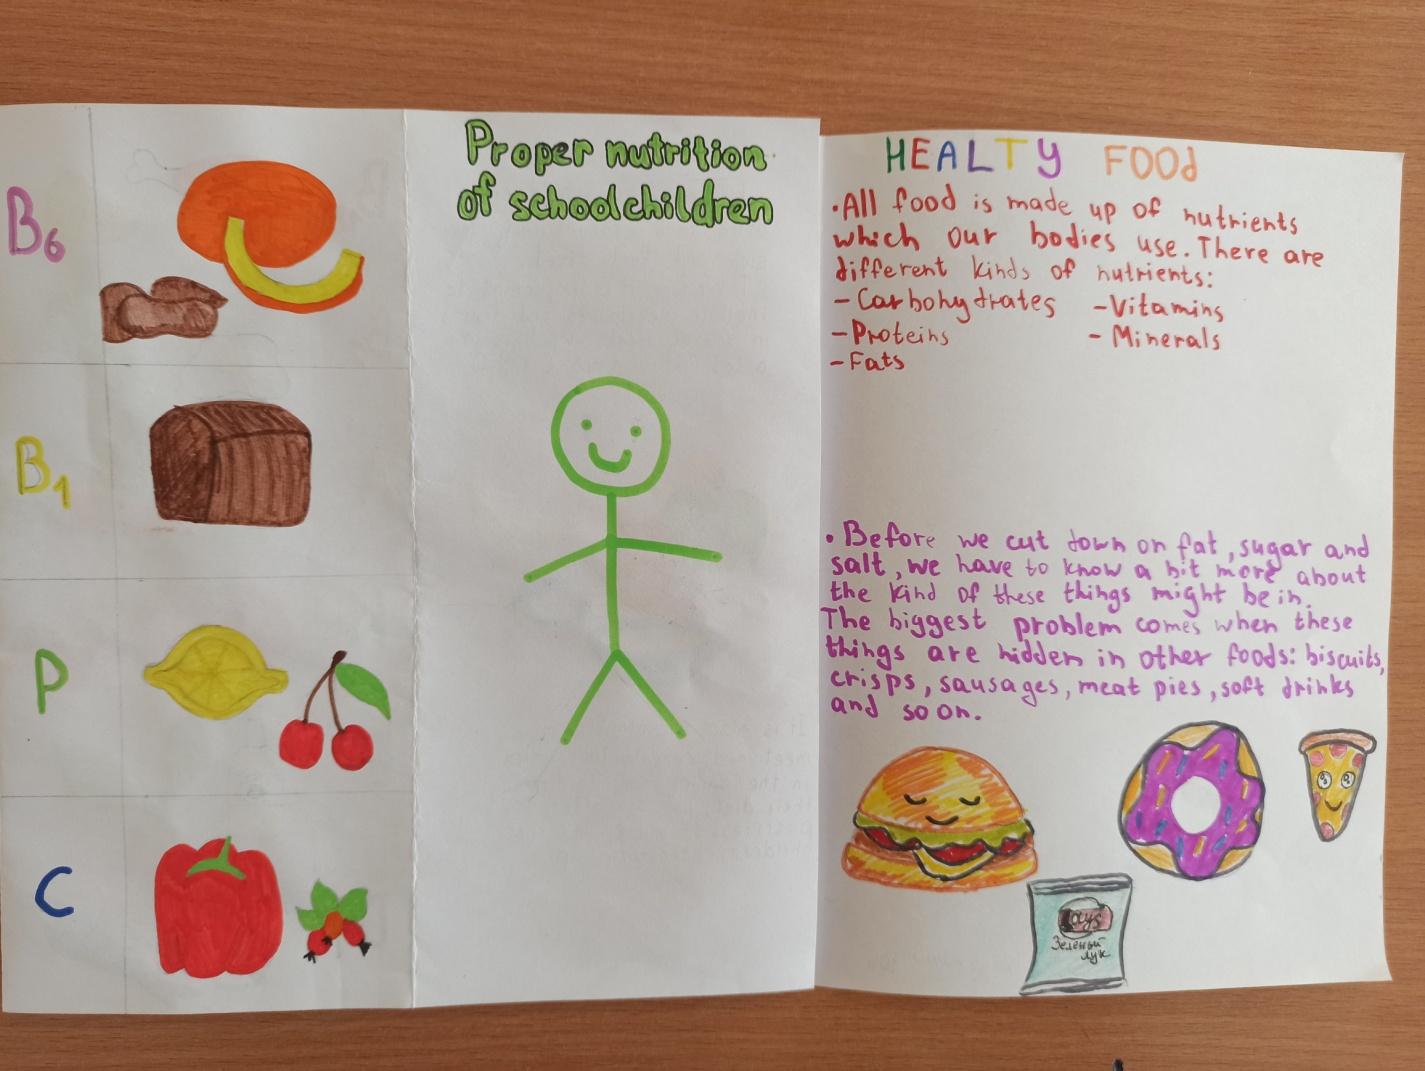 B6
B1
P
C
Proper nutrition
of schoolchildren
HEALTY FOOd
•All food is made up of nutrients
which our bodies use. There are
different kinds of nutrients:
-Carbohydrates
-Proteins
-Fats
-Vitamins
-Minerals
•Before we cut down on fat, sugar and
salt, we have to know a bit more about
the kind of these things might be in.
The biggest problem comes when these
things are hidden in other foods: biscuits,
crisps, sausages, meat pies, soft drinks
and so on.
Lays
Зеленый
лук